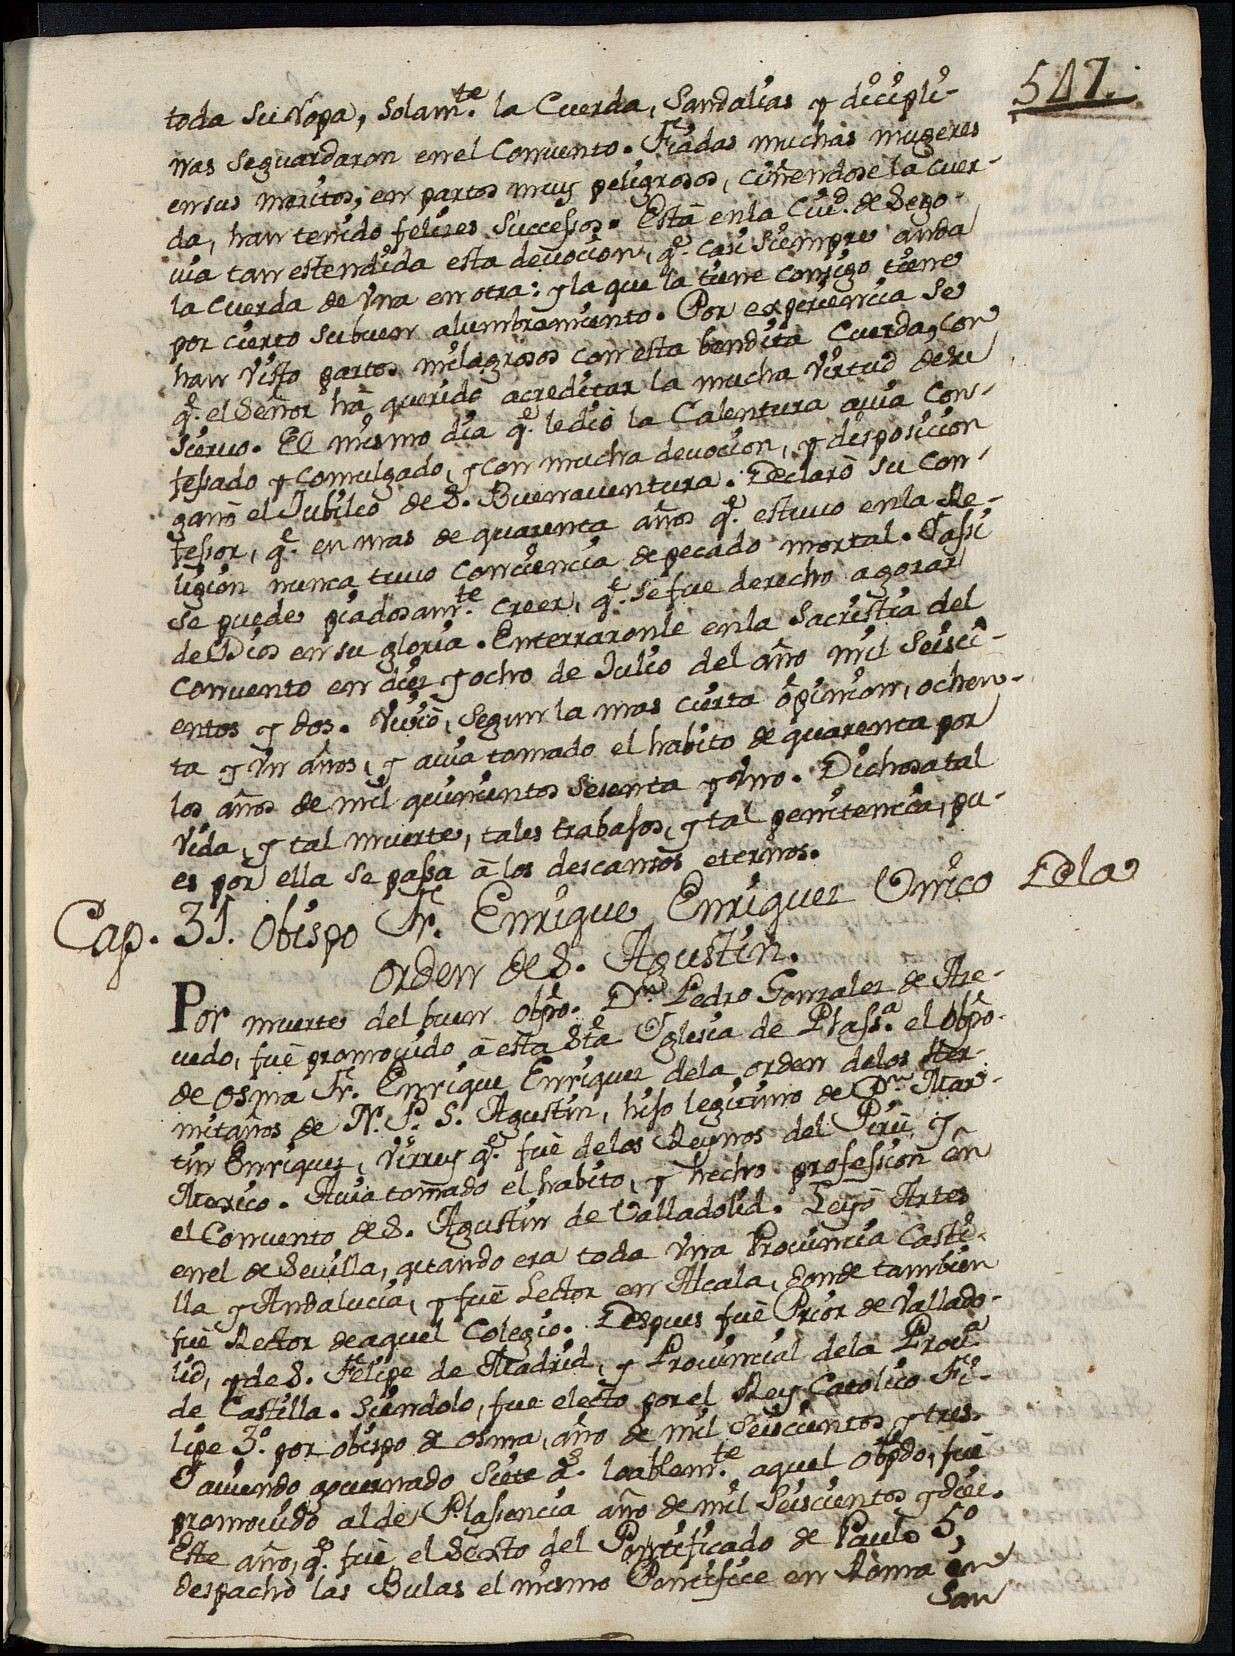 547.
toda su ropa, solam.te la Cuerda, Sandalias y dicipli-
nas se guardaron en el Convento. Fiadas muchas mugeres
en sus meritos, en partos muy peligrosos, ciñendose la cuer-
da, han tenido felizes Successos. Està en la Ciu.d de Sego-
via tan estendida esta devocion, q.e casi siempre anda
la cuerda de Vna en otra: y la que la tiene consigo tiene
por cierto su buen alumbramiento. Por experiencia se
han visto partos milagrosos con esta bendita Cuerda, con
q.e el Señor hà querido acreditar la mucha virtud de su
Siervo. El mismo dia q.e le diò la Calentura avia Con-
fessado y comulgado, y con mucha devocion, y disposicion
ganò el Jubileo de S. Buenaventura. Declarò su Con-
fessor, q.e en mas de quarenta años q.e estuvo en la Re-
ligion nunca tuvo conciencia de pecado mortal. Y assi
se puede piadosam.te creer, q.e se fue derecho a gozar
de Dios en su gloria. Enterraronle en la Sacristia del
convento en diez y ocho de Julio del año mil seisci-
entos y dos. Viviò, segun la mas cierta opinion, ochen-
ta y Vn años, y avia tomado el habito de quarenta por
los años de mil quinientos sesenta y Vno. Dichosa tal
Vida, y tal muerte, tales trabajos, y tal penitencia, pu-
es por ella se passa à los descansos eternos.
Cap. 31. Obispo Fr. Enrique Enriquez Vnico de la
orden de S. Agustin.
Por muerte del buen obpo. D.n Pedro Gonzalez de Aze-
vedo, fuè promovido à esta S.ta Yglesia de Plass.a el obpo.
de Osma Fr. Enrique Enriquez de la orden de los Her-
mitaños de N. P. S. Agustin, hijo legitimo de D.n Mar-
tin Enriquez, Virrey q.e fuè de los Reynos del Pirù, y
Mexico. Avia tomado el habito, y hecho profession en
el Convento de S. Agustin de Valladolid. Leyò Artes
en el de Sevilla, quando era toda Vna Provincia Casti-
lla y Andalucia, y fuè Lector en Alcala, donde tambien
fuè Rector de aquel Colegio. Despues fuè Prior de Vallado-
lid, y de S. Felipe de Madrid, y Provincial de la Prov.a
de Castilla. Siendolo, fue electo por el Rey Catolico Fi-
lipe 3.o por obispo de Osma, año de mil seiscientos y tres.
Y aviendo governado siete a.s loablem.te aquel obpdo, fuè
promovido al de Plasencia año de mil seiscientos y diez.
Este año, q.e fuè el sexto del Pontificado de Paulo 5.o
despachò las Bulas el mismo Pontifice en Roma en
San